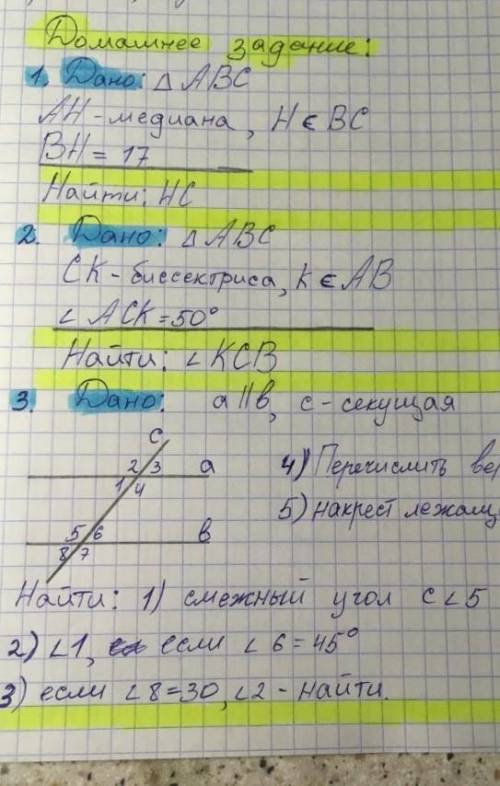 Домашнее задание:
1. Дано: △ABC
AH - медиана, H ∈ BC
BH = 17
Найти: HC
2. Дано: △ABC
CK - биссектриса, K ∈ AB
∠ACK = 50°
Найти: ∠KCB
3. Дано: a || b, c - секущая
c
2 3 a
1 4
5 6 b
8 7
4) Перечислить
5) накрест
Найти: 1) смежный угол с ∠5
2) ∠1, если ∠6 = 45°
3) если ∠8 = 30, ∠2 - найти.